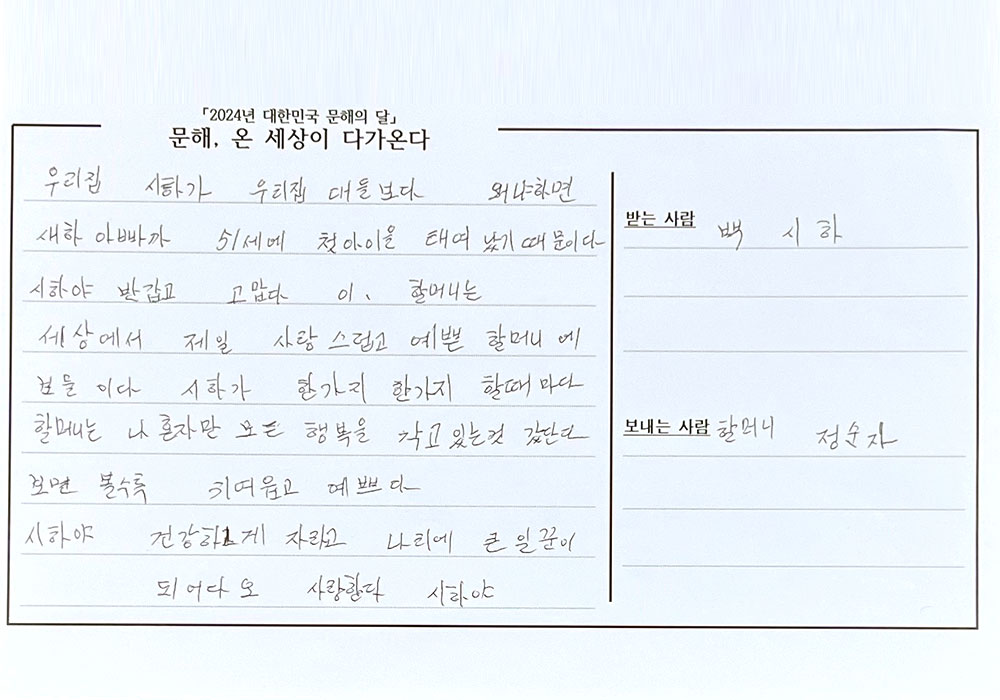 「2024년 대한민국 문해의 달」
문해, 온 세상이 다가온다
우리집 시하가 우리집 대들보다 왜냐하면
새하 아빠까 51세에 첫아이을 태여 났기 때문이다
시하야 반갑고 고맙다 이. 할머니는
세상에서 제일 사랑스럽고 예쁜 할머니 에
보물 이다 시하가 한가지 한가지 할때 마다
할머니는 나 혼자만 모든 행복을 각고 있는것 갔단다
보면 볼수록 귀여웁고 예쁘다
시하야 건강하게 자라고 나리에 큰 일꾼이
되어다오 사랑한다 시하야
받는 사람 백 시 하
보내는 사람 할머니 정순자